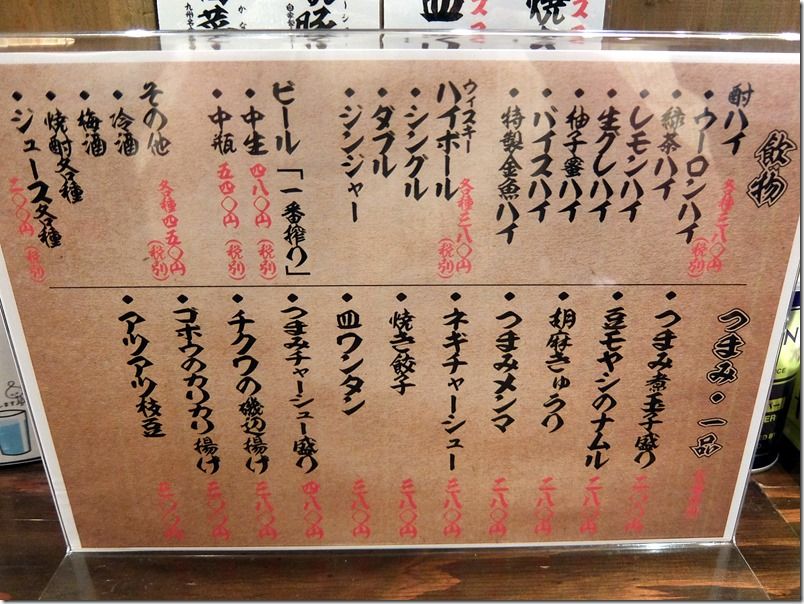 飲物
酎ハイ 各種三八〇円(税別)
・ウーロンハイ
・緑茶ハイ
・レモンハイ
・生グレハイ
・柚子蜜ハイ
・バイスハイ
・特製金魚ハイ
ウィスキー
ハイボール 各種三八〇円(税別)
・シングル
・ダブル
・ジンジャー
ビール「一番搾り」
・中生 四八〇円(税別)
・中瓶 五四〇円(税別)
その他 各種四五〇円(税別)
・冷酒
・梅酒
・焼酎各種
・ジュース各種 二〇〇円(税別)
つまみ・一品
・つまみ煮玉子盛り
・豆モヤシのナムル 二八〇円
・胡麻きゅうり 二八〇円
・つまみメンマ 二八〇円
・ネギチャーシュー 三八〇円
・焼き餃子 三八〇円
・皿ワンタン 三八〇円
・つまみチャーシュー盛り 四八〇円
・チクワの磯辺揚げ 三八〇円
・ゴボウのカリカリ揚げ 三〇〇円
・アツアツ枝豆 三〇〇円